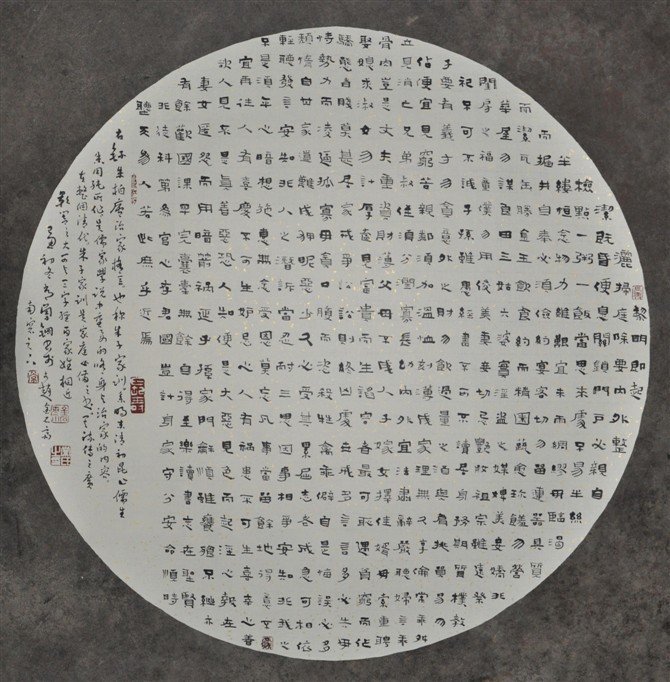 黎明即起
灑掃庭除要內外整
潔既昏便息關鎖門戶必親自
檢點一粥一飯當思來處不易半絲
半縷恒念物力維艱宜未雨綢繆毋臨渴
而掘井自奉必須儉約宴客切勿留連器具質
而潔瓦缶勝金玉飲食約而精園蔬愈珍饈勿營
華屋勿謀良田三姑六婆實淫盜之媒婢美妾嬌非
閨房之福童僕勿用俊美妻妾切忌艷妝祖宗雖遠祭
祀不可不誠子孫雖愚經書不可不讀居身務期質樸教
子要有義方勿貪意外之財勿飲過量之酒與肩挑貿易勿
佔便宜見窮苦親鄰須加溫恤刻薄成家理無久享倫常乖舛
立見消亡兄弟叔侄須分多潤寡長幼內外宜法肅辭嚴聽婦言乖
骨肉豈是丈夫重資財薄父母不成人子嫁女擇佳婿毋索重聘
娶媳求淑女勿計厚奩見富貴而生諂容者最可恥遇貧窮而作
驕態者賤莫甚居家戒爭訟訟則終凶處世戒多言言多必失毋
恃勢力而凌逼孤寡毋貪口腹而恣殺牲禽乖僻自是悔誤必多
頹惰自甘家道難成狎昵惡少久必受其累屈志老成急則可相依
輕聽發言安知非人之譖訴當忍耐三思因事相爭安知非我之
不是須平心暗想施惠無念受恩莫忘凡事當留餘地得意不
宜再往人有喜慶不可生妒忌心人有禍患不可生喜幸心善
欲人見不是真善惡恐人知便是大惡見色而起淫心報在
妻女匿怨而用暗箭禍延子孫家門和順雖饔飧不繼亦
有餘歡國課早完囊橐無餘自得至樂讀書志在聖賢
非徒科第為官心存君國豈計身家守分安命順時
聽天為人若此庶乎近焉
右錄朱柏廬治家格言也稱朱子家訓系明末清初昆山儒生
朱用純所作是儒家學說中重要的修身與治家的內容